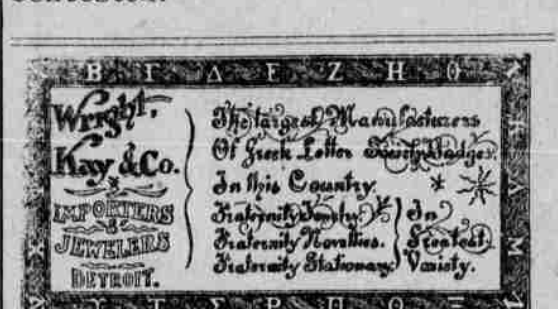 Β Γ Δ Ε Ζ Η Θ
Wright,
Kay & Co.
IMPORTERS
&
JEWELERS
DETROIT.
The largest Manufacturers
Of Greek Letter Society Badges.
In this Country.
Fraternity Jewelry.
Fraternity Novelties.
Fraternity Stationary.
In
Greatest
Variety.
Υ Τ Σ Ρ Π Ο Ξ